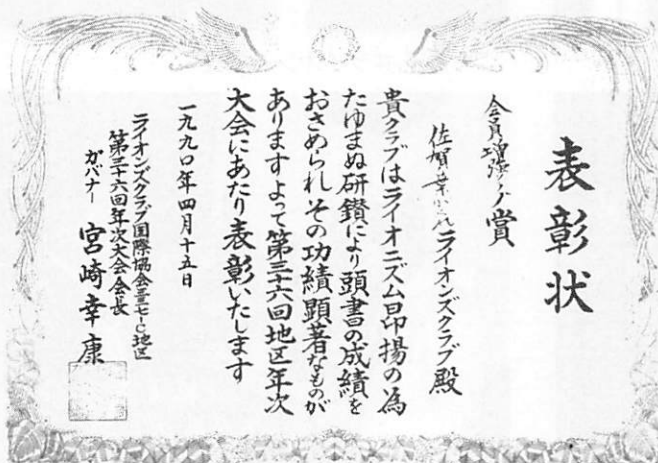 表彰状
会員増強賞
佐賀葉がくれライオンズクラブ殿
貴クラブはライオニズム昂揚の為
たゆまぬ研鑽により頭書の成績を
おさめられその功績顕著なものが
ありますよって第三十六回地区年次
大会にあたり表彰いたします
一九九〇年四月十五日
ライオンズクラブ国際協会三三七-C地区
第三十六回年次大会会長
ガバナー 宮崎幸康